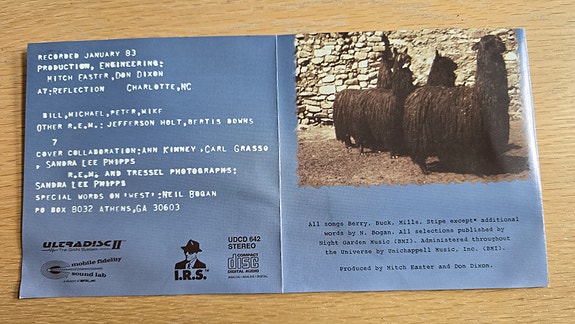 RECORDED JANUARY 83
PRODUCTION, ENGINEERING:
MITCH EASTER, DON DIXON
AT: REFLECTION CHARLOTTE, NC
BILL, MICHAEL, PETER, MIKE
OTHER R.E.M.: JEFFERSON HOLT, BERTIS DOWNS
7
COVER COLLABORATION: ANN KINNEY, CARL GRASSO
& SANDRA LEE PHIPPS
R.E.M. AND TRESSEL PHOTOGRAPHS:
SANDRA LEE PHIPPS
SPECIAL WORDS ON "WEST": NEIL BOGAN
PO BOX 8032 ATHENS, GA 30603
ULTRADISC II
mobile fidelity
sound lab
I.R.S.
UDCD 642
STEREO
COMPACT
disc
DIGITAL AUDIO
All songs Berry, Buck, Mills, Stipe except* additional
words by N. Bogan. All selections published by
Night Garden Music (BMI). Administered throughout
the Universe by Unichappell Music, Inc. (BMI).
Produced by Mitch Easter and Don Dixon.